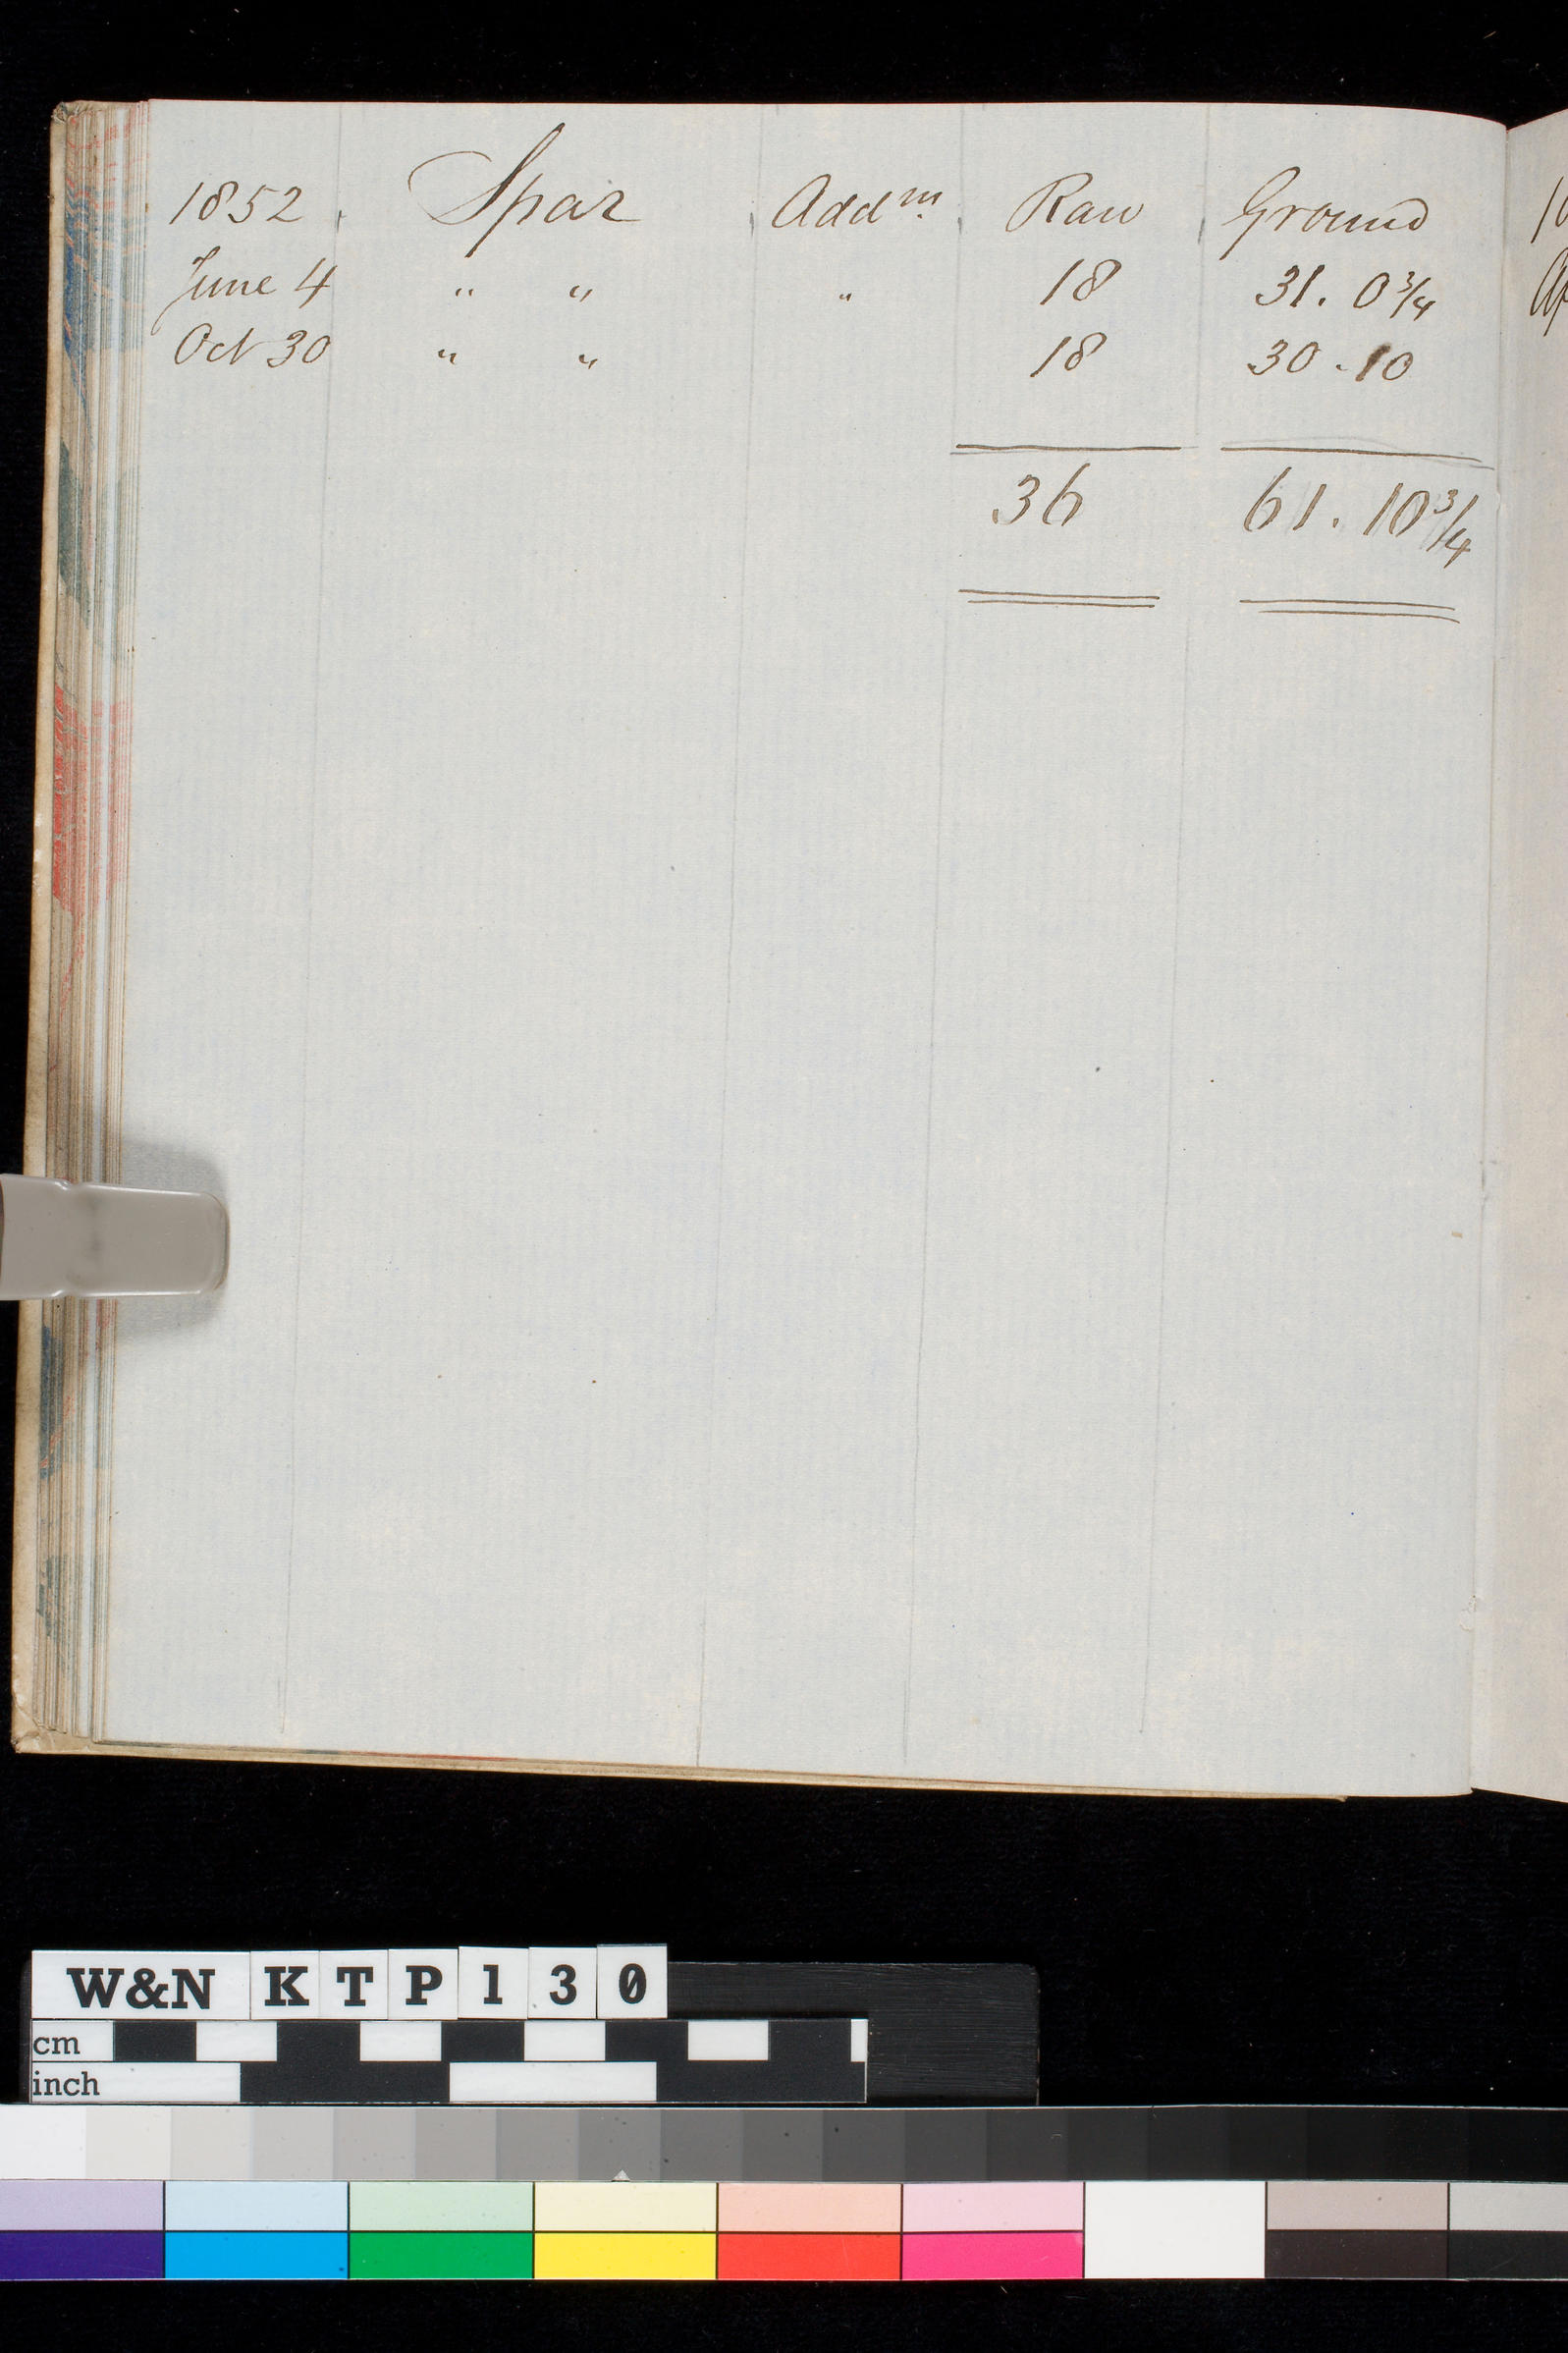 1852 Spar Addm. Raw Ground
June 4 " " " 18 31. 0 3/4
Oct 30 " " 18 30. 10
36 61. 10 3/4
W&N KTP130
cm
inch